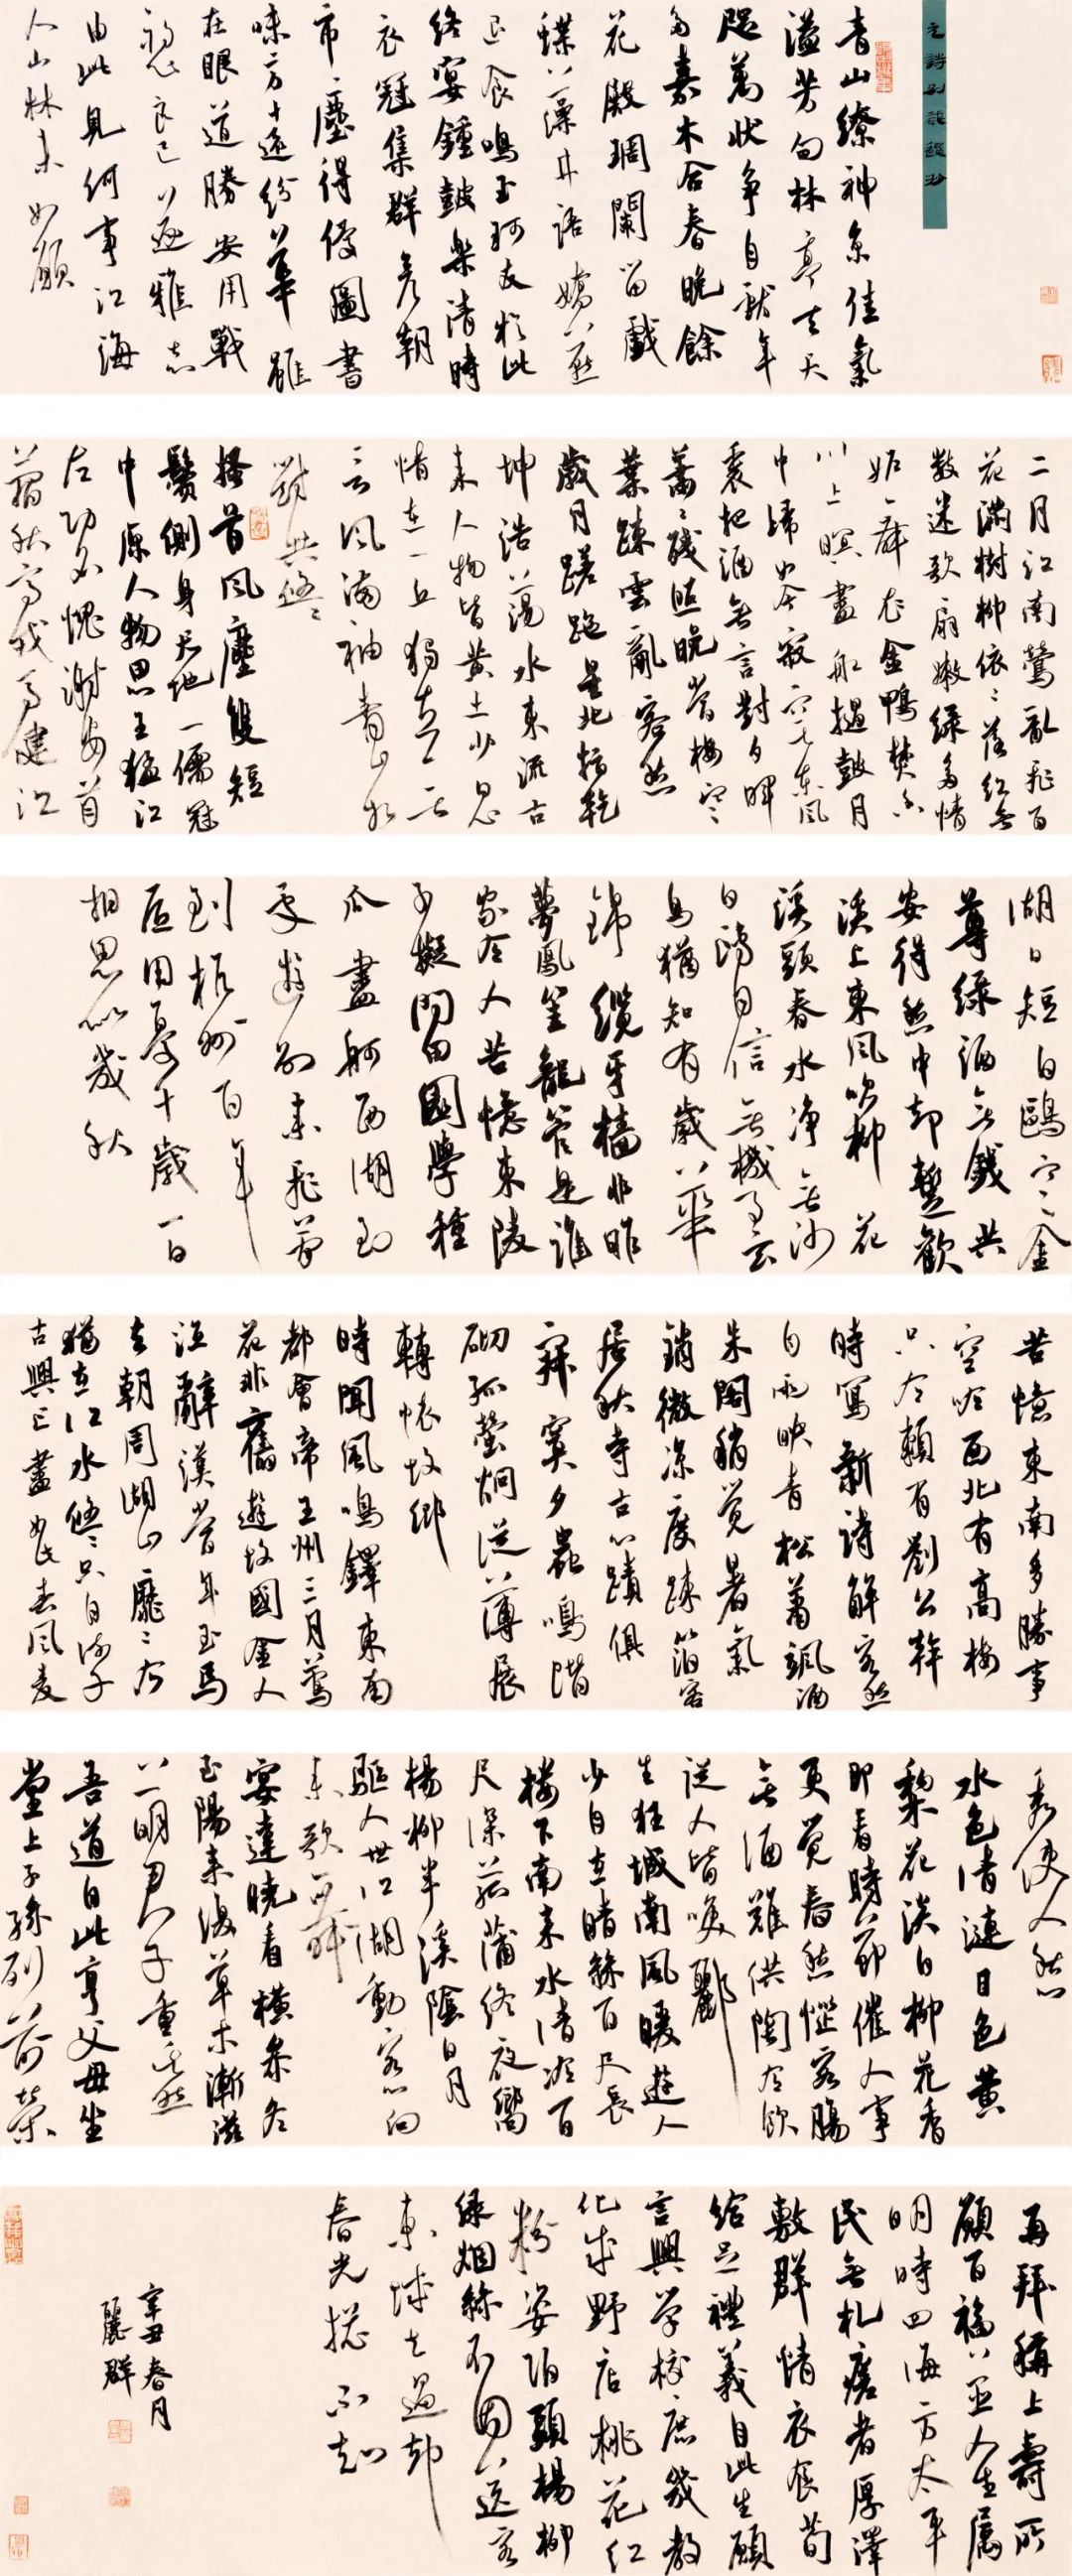 元詩別裁選抄
青山繚神京佳氣
溢芳甸林亭去天
咫萬狀爭自獻年
多嘉木合春晚餘
花殿琱闌留戲
蝶藻井語嬌燕
退食鳴玉珂友於此
終宴鍾鼓樂清時
衣冠集群彥朝
市塵得侵圖書
味方十逐紛華雖
在眼道勝安用戰
良已遂雅志
由此見何事江海
人山林未如願
二月江南鶯亂飛百
花滿樹柳依依落紅無
數迷歌扇嫩綠多情
妒舞衣金鴨焚香
川上暝畫船撾鼓月
中歸如今寂寞東風
裏把酒無言對夕暉
蕭蕭殘照晚當樓寥寥
葉疎雲亂客愁
歲月蹉跎星北指乾
坤浩蕩水東流古
來人物皆黃土少日
情在一丘獨立無
言風滿袖青山
對共悠悠
搔首風塵雙短
鬢側身天地一儒冠
中原人物思王猛江
左功名愧謝安首
蓿秋高戎馬健江
湖日短白鷗寒金
尊綠酒無錢共
安得愁中卻暫歡
溪上東風吹柳花
溪頭春水淨無沙
白鷗自信無機事玄
鳥猶知有歲華
錦纜牙檣非昨
夢鳳笙龍管是誰
家令人苦憶東陵
子擬問田園學種
瓜畫舸西湖到
處遊別來飛夢
到杭州百年
底用憂千歲一日
相思似幾秋
苦憶東南多勝事
空吟西北有高樓
只今賴有劉公幹
時寫新詩解客愁
白雨映青松蕭颯洒
朱閣稍覺暑氣
銷微涼度疎箔客
居秋寺古心蹟俱
寂寞夕蟲鳴階
砌孤螢炯從薄展
轉悵故鄉
時聞風鳴鐸東南
都會帝王州三月鶯
花非舊遊故國金人
泣辭漢當年玉馬
去朝周湖山靡靡今
猶在江水悠悠只自流千
古興亡盡如此春風麥
秀使人愁
水色清漣日色黃
梨花淡白柳花香
即看時節催人事
更覺春愁惱客腸
無酒難供陶令飲
從人皆喚酈
生狂城南風暖遊人
少自在晴絲百尺長
樓下南來水清泠百
尺深菰蒲終夜響
楊柳半溪陰日月
驅人世江湖動客心向
來歌舞
宴達曉看橫參冬
至陽來復草木漸滋
明君子重其然
吾道自此亨父母坐
堂上子孫列前榮
再拜稱上壽所
願百福並人生屬
明時四海方太平
民無札瘥者厚澤
敷群情衣食苟
給足禮義自此生願
言興學校庶幾教
化成野店桃花紅
粉姿陌頭楊柳
綠烟絲不因送客
東城去過却
春光揔不知
辛丑春月
麗群